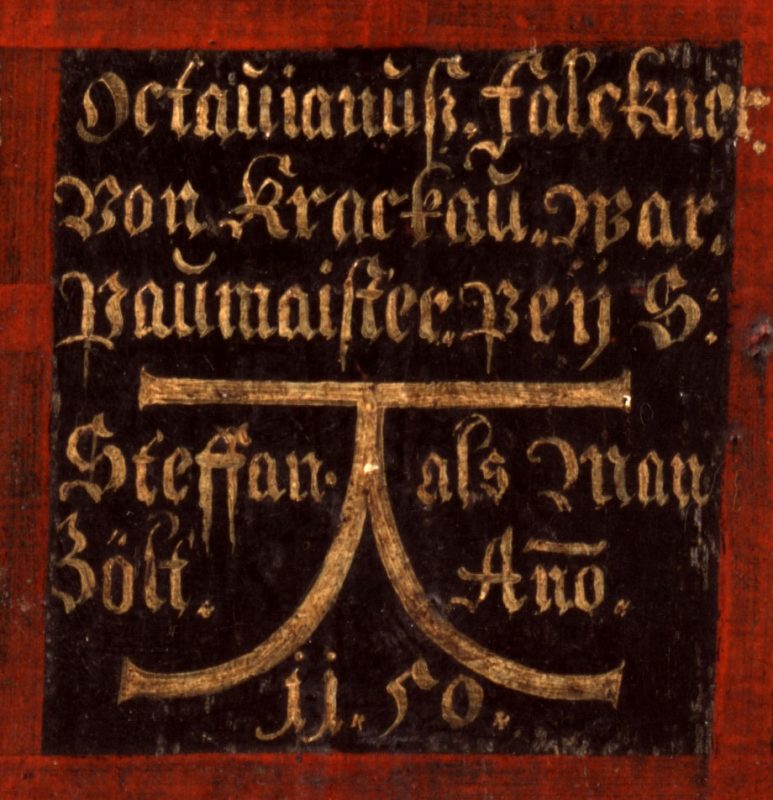 Octaŭianŭß. Falckner.
Von Krackaŭ. War.
Paŭmaister. Peij S:
Steffan. als Man
Zölt. Anō.
jj. 50.